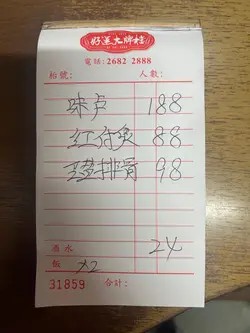 好運大牌檔
電話:2682 2888
枱號: 人數:
味卢 188
红付炙 88
排骨 98
酒水 24
飯 x2
31859 合計: